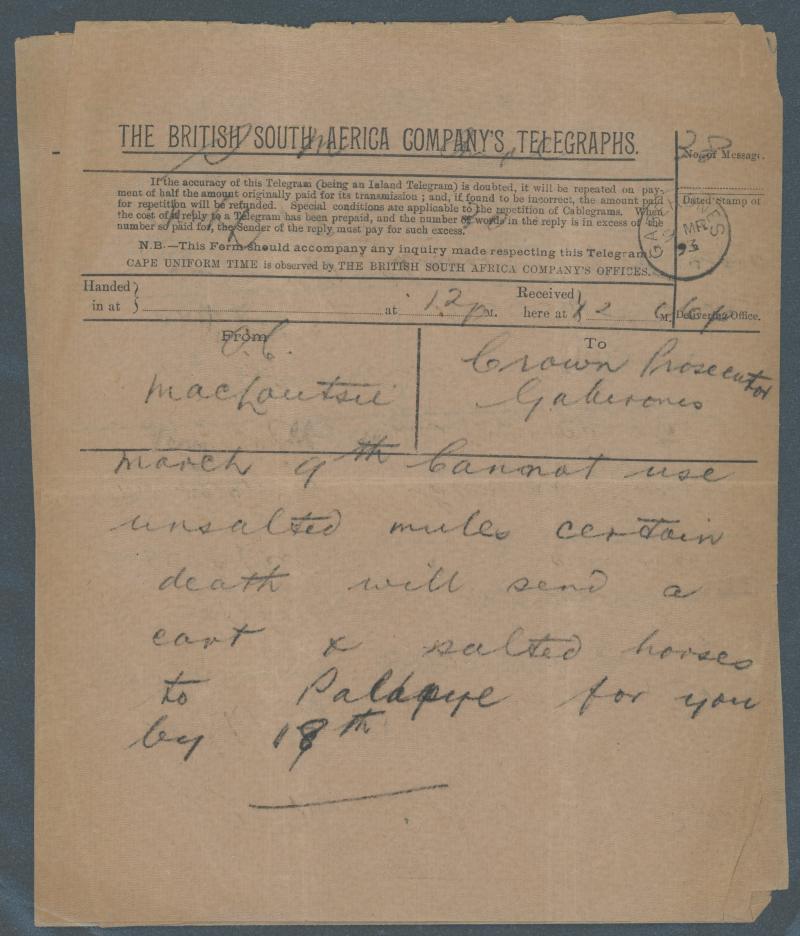 THE BRITISH SOUTH AFRICA COMPANY'S TELEGRAPHS.
No. of Message.
If the accuracy of this Telegram (being an Inland Telegram) is doubted, it will be repeated on pay-
ment of half the amount originally paid for its transmission; and, if found to be incorrect, the amount paid
for repetition will be refunded. Special conditions are applicable to the repetition of Cablegrams. When
the cost of a reply to a Telegram has been prepaid, and the number of words in the reply is in excess of the
number so paid for, the Sender of the reply must pay for such excess.
Dated Stamp of
MR
93
N.B.—This Form should accompany any inquiry made respecting this Telegram.
CAPE UNIFORM TIME is observed by THE BRITISH SOUTH AFRICA COMPANY'S OFFICES.
Handed in at } at 12 p M. Received here at } 12 M. Delivering Office.
From
To
Macloutsie
Crown Prosecutor
Gaberones
March 9th Cannot use
unsalted mules certain
death will send a
cart & salted horses
to Palapye for you
by 18th